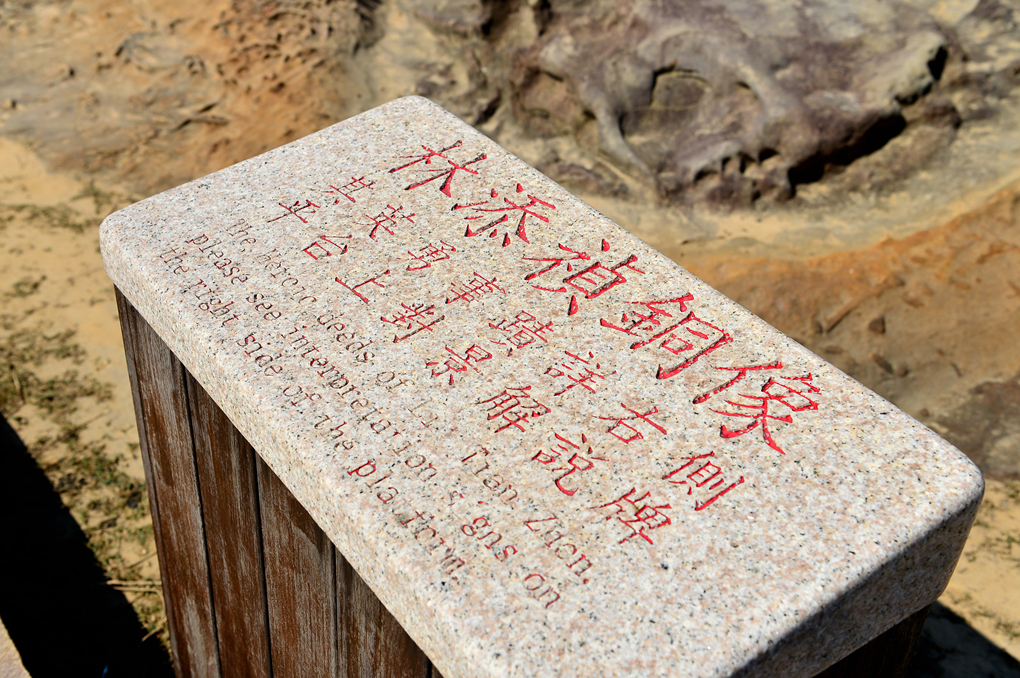 林添禎銅像
其英勇事蹟詳右側
平台上對景解說牌
The heroic deeds of Lin Tian Zhen.
please see interpretation signs on
the right side of the platform.